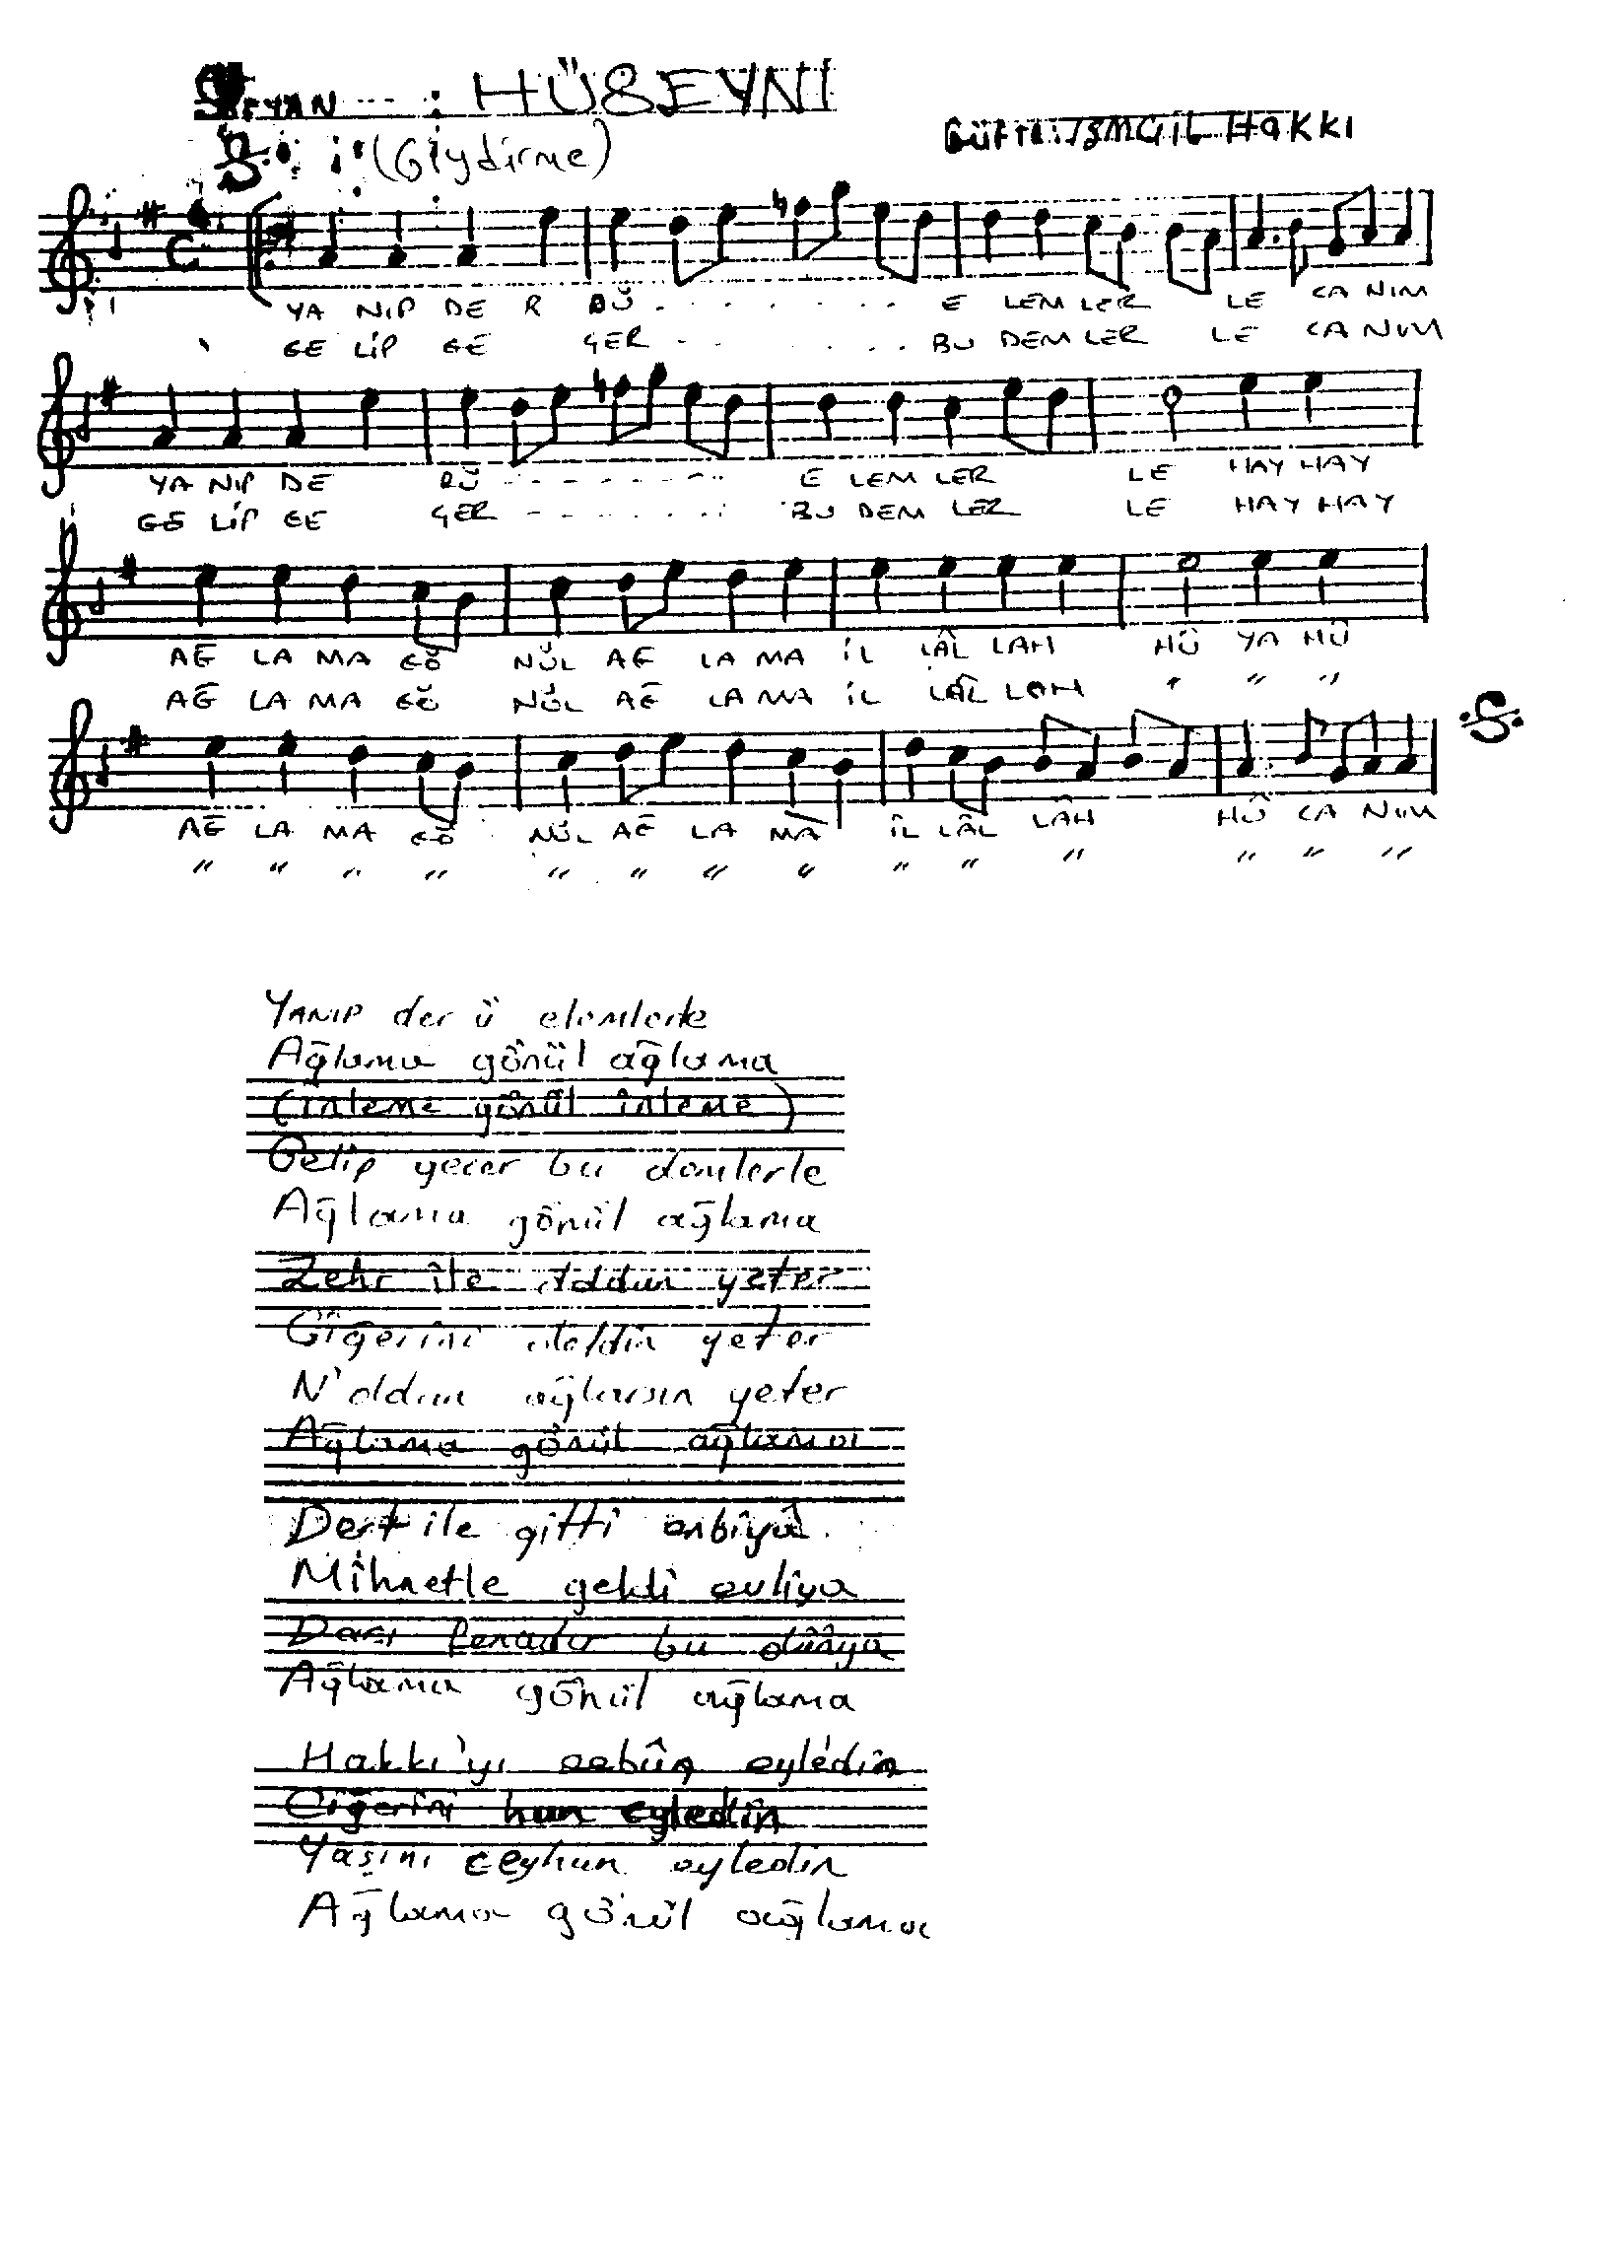 HÜSEYNİ
Güfte: İSMAİL HAKKI
(Giydirme)
YA NIP DE R DÜ - - - - - - E LEM LER LE CA NIM
GE LİP GE ÇER - - - - - - BU DEM LER LE CA NIM
YA NIP DE RÜ - - - - - - E LEM LER LE HAY HAY
GE LİP GE ÇER - - - - - - BU DEM LER LE HAY HAY
AĞ LA MA GÖ NÜL AĞ LA MA İL LÂL LAH HÛ YA HÛ
AĞ LA MA GÖ NÜL AĞ LA MA İL LÂL LAH " " "
AĞ LA MA GÖ NÜL AĞ LA MA İL LÂL LÂH HÛ CA NIM
" " " " " " " " " " " " " "
YANIP der ü elemlerle
Ağlama gönül ağlama
(inleme gönül inleme)
Gelip geçer bu demlerle
Ağlama gönül ağlama
Zehr ile doldun yeter
Ciğerini deldin yeter
N'oldun ağlarsın yeter
Ağlama gönül ağlama
Dert ile gitti enbiyâ
Mihnetle geldi evliya
Darı fenadır bu dünya
Ağlama gönül ağlama
Hakkı'yı zebûn eyledin
Ciğerini hun eyledin
Yaşını ceyhun eyledin
Ağlama gönül ağlama